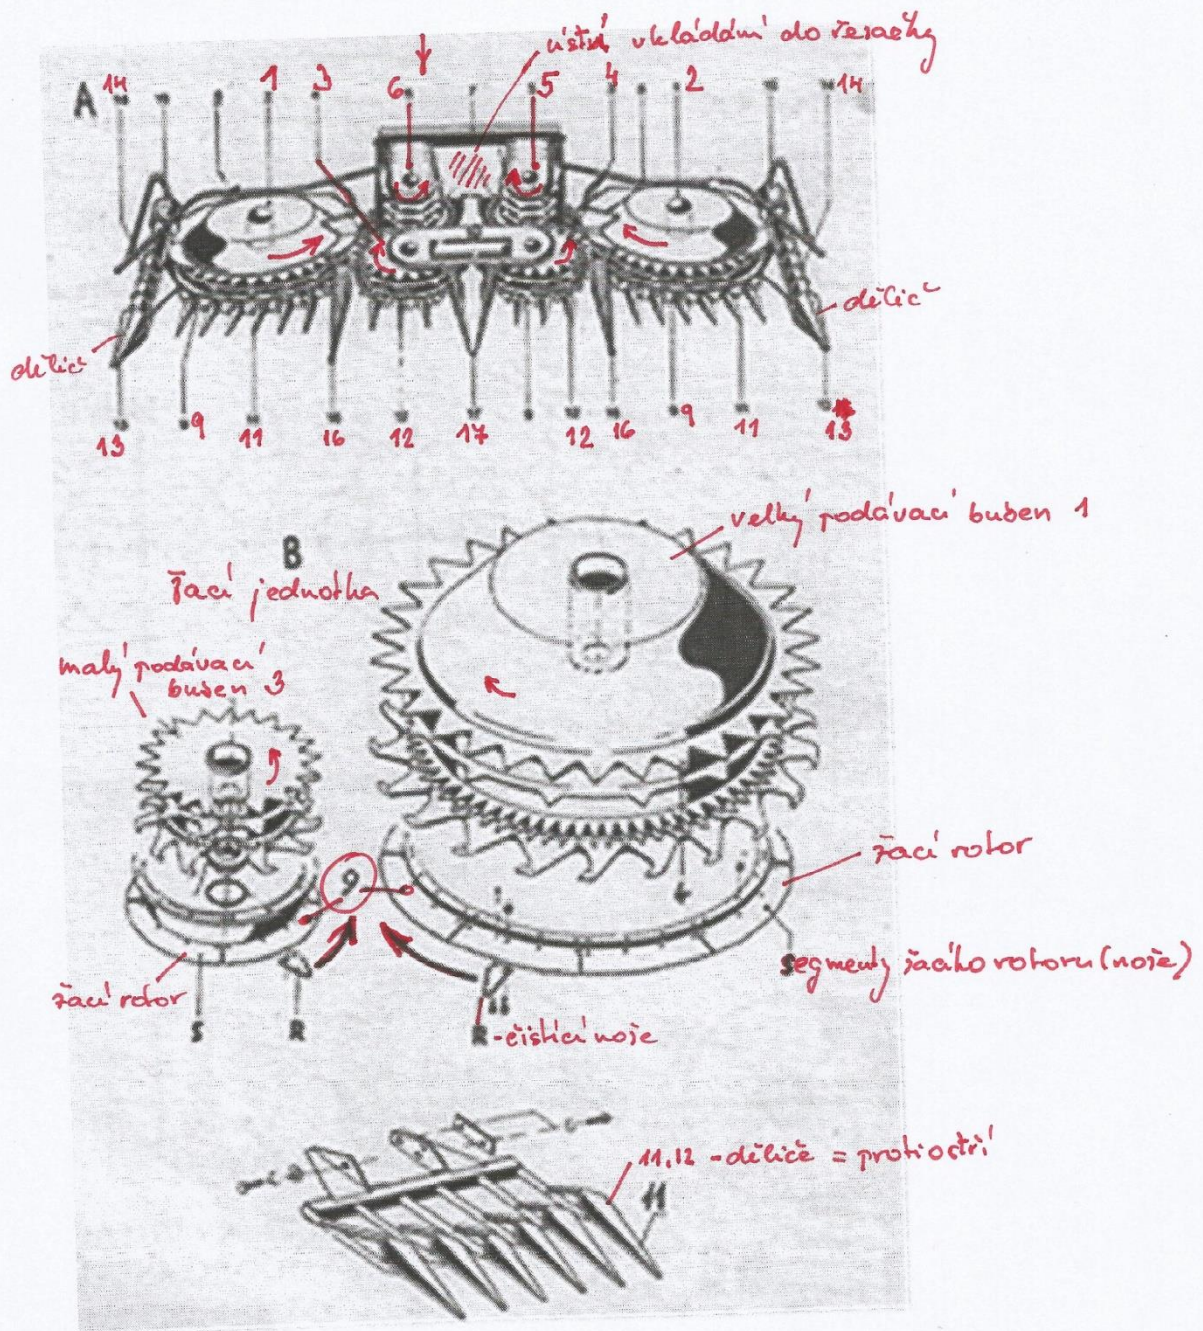 ústní vkládání do řezačky
A 14 1 3 6 5 4 2 14
dělič
dělič
13 9 11 16 12 17 12 16 9 11 13
velký podávací buben 1
B
žací jednotka
malý podávací
buben 3
9
žací rotor
segmenty žacího rotoru (nože)
žací rotor
S R R - čisticí nože
11, 12 - děliče = protiostří
11